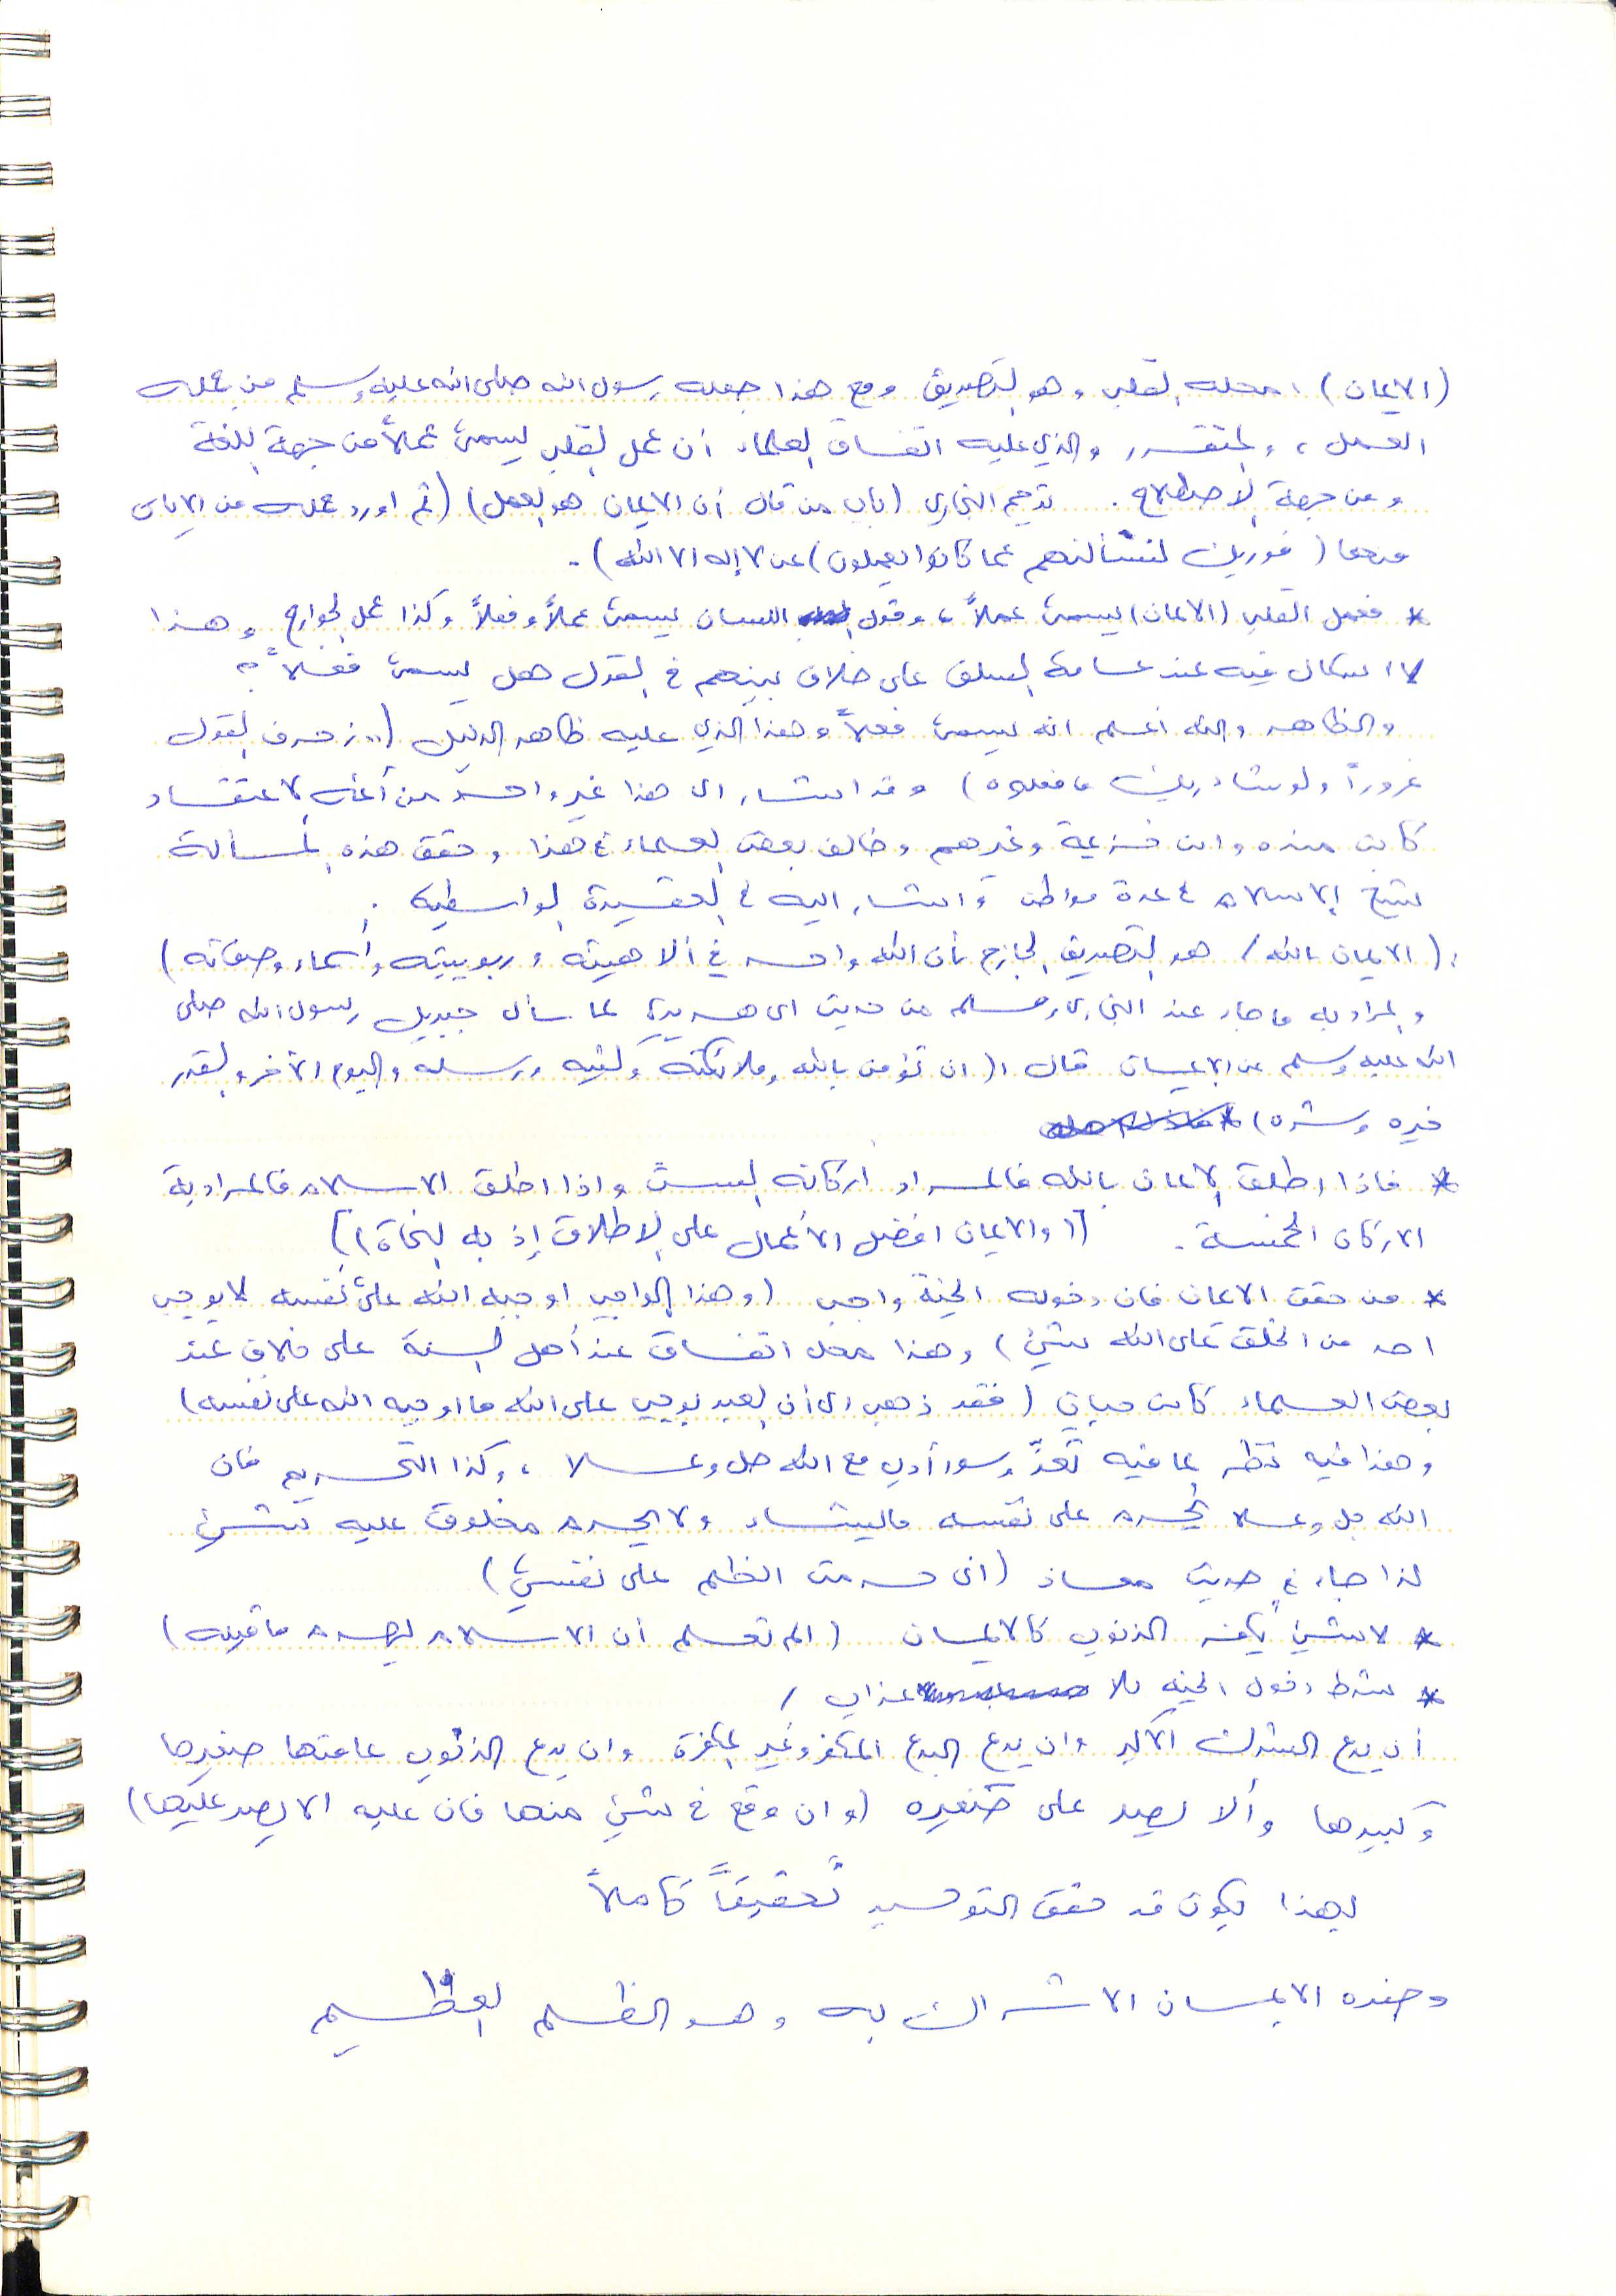 (الايمان) : محله القلب وهو التصديق ومع هذا جعله رسول الله صلى الله عليه وسلم من جملة
العمل ، والمتقرر والذي عليه اتفاق العلماء أن عمل القلب يسمى عملاً من جهة اللغة
ومن جهة الاصطلاح . ترجم البخاري (باب من قال أن الايمان هو العمل) (ثم اورد جملة من الايات
منها (فوربك لنسألنهم عما كانوا يعملون) عن لا إله الا الله) .
* فعمل القلب (الايمان) يسمى عملاً ، وقول اللسان يسمى عملاً وفعلاً وكذا عمل الجوارح وهذا
لا اشكال فيه عند عامة السلف على خلاف بينهم في القول هل يسمى فعلاً ؟
والظاهر والله اعلم انه يسمى فعلاً وهذا الذي عليه ظاهر الدليل (.. زخرف القول
غروراً ولو شاء ربك ما فعلوه) وقد اشار الى هذا غير واحد من أئمة الاعتقاد
كابن منده وابن خزيمة وغيرهم وخالف بعض العلماء في هذا وحقق هذه المسألة
شيخ الاسلام في عدة مواطن و اشار اليه في العقيدة الواسطية .
: (الايمان بالله / هو التصديق الجازم بأن الله واحد في ألاهيته وربوبيته وأسماءه وصفاته)
والمراد به ما جاء عند البخاري ومسلم من حديث ابي هريرة لما سأل جبريل رسول الله صلى
الله عليه وسلم عن الايمان قال : (ان تؤمن بالله وملائكته وكتبه ورسله واليوم الآخر والقدر
خيره وشره)
* فاذا اطلق الايمان بالله فالمراد اركانه الستة واذا اطلق الاسلام فالمراد به
الاركان الخمسة . [(والايمان افضل الأعمال على الاطلاق إذ به النجاة)]
* من حقق الايمان فان دخوله الجنة واجب (وهذا الواجب اوجبه الله على نفسه لا يوجب
احد من الخلق على الله شيئ) وهذا محل اتفاق عند أهل السنة على خلاف عند
بعض العلماء كابن حبان (فقد ذهب الى أن العبد يوجب على الله ما اوجبه الله على نفسه)
وهذا فيه نظر بما فيه تعدٍّ وسوء أدب مع الله جل وعلا ، وكذا التحريم فان
الله جل وعلا يحرم على نفسه ما يشاء ولا يحرم مخلوق عليه شيئ
لذا جاء في حديث معاذ (انى حرمت الظلم على نفسي)
* لا شيئ يكفر الذنوب كالايمان (الم تعلم أن الاسلام يهدم ما قبله)
* شرط دخول الجنة بلا عذاب /
أن يدع الشرك الأكبر وان يدع البدع المكفر وغير المكفرة وان يدع الذنوب عامتها صغيرها
وكبيرها وألا يصر على صغيره (وان وقع في شيئ منها فان عليه الا يصر عليها)
بهذا يكون قد حقق التوحيد تحقيقاً كاملاً
وضده الايمان الاشراك به وهو الظلم العظيم